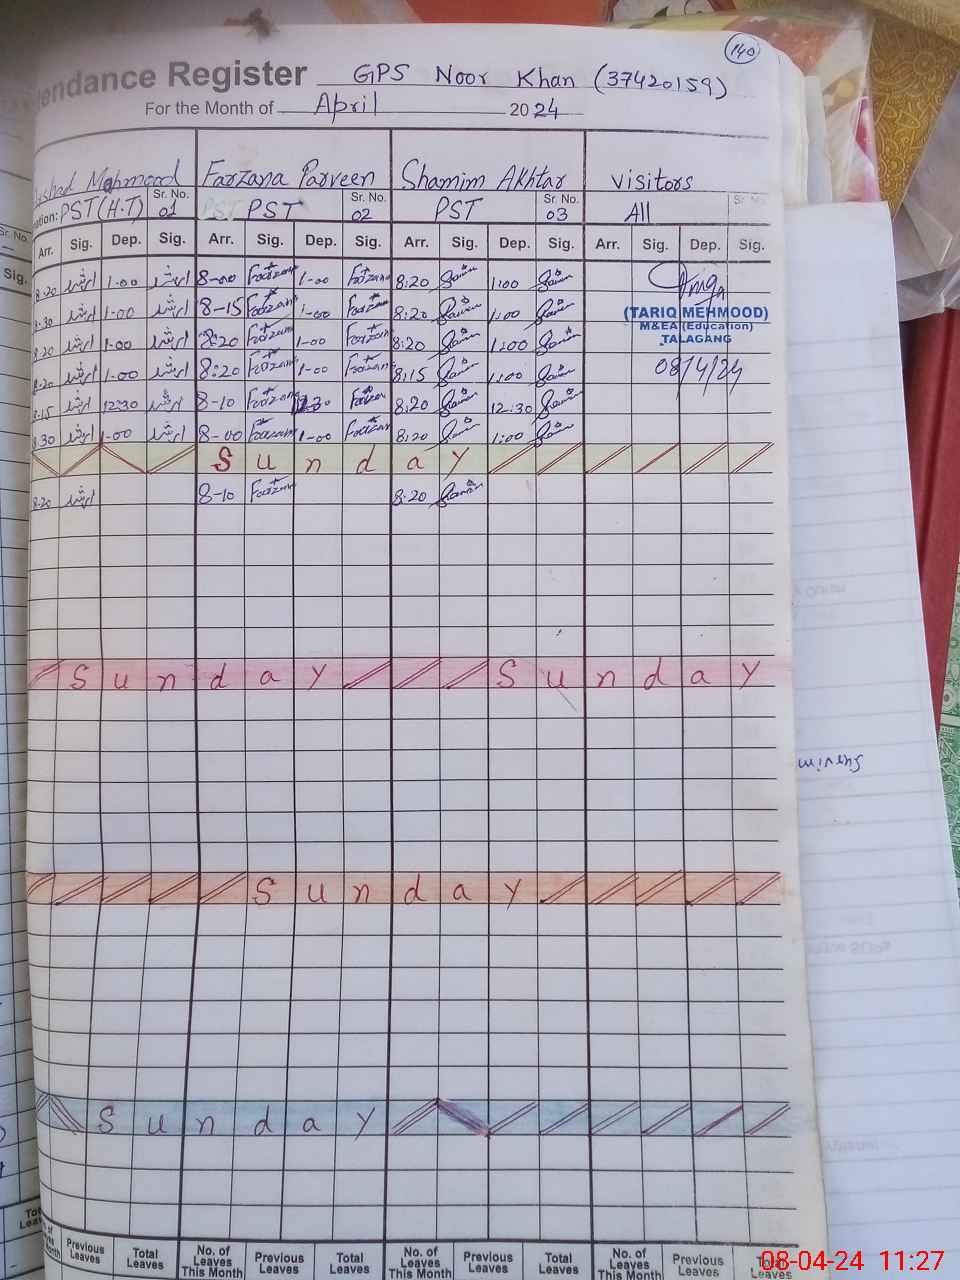 140
endance Register GPS Noor Khan (37420159)
For the Month of April 2024
Mahmood Farzana Parveen Shamim Akhtar Visitors
ation: PST(H.T) Sr. No. 01 PST PST Sr. No. 02 PST Sr. No. 03 All Sr. No.
Sr. No.
Sig. Arr. Sig. Dep. Sig. Arr. Sig. Dep. Sig. Arr. Sig. Dep. Sig. Arr. Sig. Dep. Sig.
8:20 ارشد 1-00 ارشد 8-00 Farzana 1-00 Farzana 8:20 1:00
8:30 ارشد 1-00 ارشد 8-15 Farzana 1-00 Farzana 8:20 1:00
(TARIQ MEHMOOD)
M&EA (Education)
8:20 ارشد 1-00 ارشد 8:20 Farzana 1-00 Farzana 8:20 1:00 TALAGANG
8:20 ارشد 1-00 ارشد 8:20 Farzana 1-00 Farzana 8:15 1:00 08/4/24
8:15 ارشد 12:30 ارشد 8-10 Farzana Farzana 8:20 12:30
8:30 ارشد 1-00 ارشد 8-00 Farzana 1-00 Farzana 8:20 1:00
Sunday
8:20 ارشد 8-10 Farzana 8:20
Sunday Sunday
Sunday
Sunday
Previous Leaves Total Leaves No. of Leaves This Month Previous Leaves Total Leaves No. of Leaves This Month Previous Leaves Total Leaves No. of Leaves This Month Previous Leaves
08-04-24 11:27